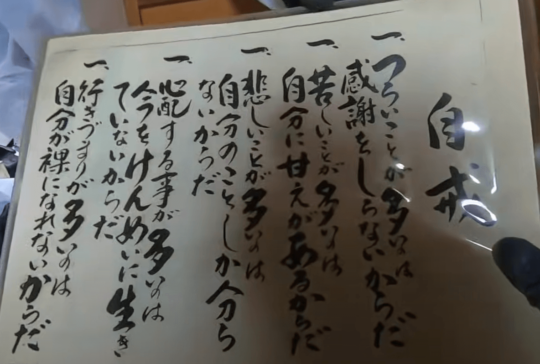 自戒
一、つらいことが多いのは
感謝をしらないからだ
一、苦しいことが多いのは
自分に甘えがあるからだ
一、悲しいことが多いのは
自分のことしか分ら
ないからだ
一、心配する事が多いのは
今をけんめいに生き
ていないからだ
一、行きづまりが多いのは
自分が裸になれないからだ